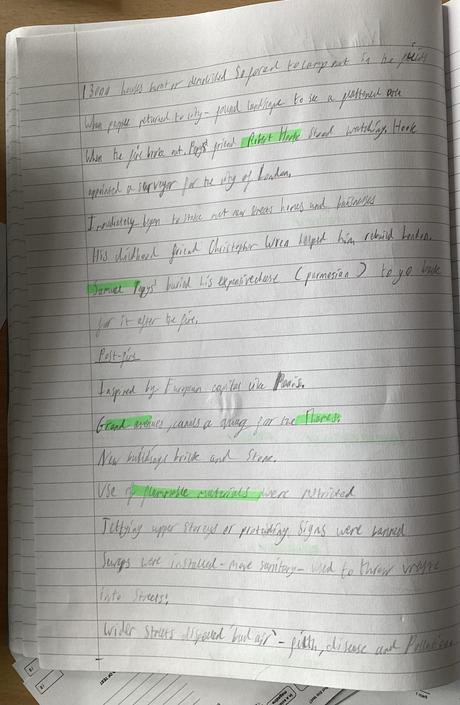 13000 houses burnt or demolished So forced to camp out in the fields
When people returned to city - found landscape to see a flattened
When the fire broke out, Pepys' friend Robert Hooke stood watching. Hooke
appointed a surveyor for the city of London.
Immediately began to stake out new streets homes and businesses
His childhood friend Christopher Wren helped him rebuild London.
Samuel Pepys' buried his expensive cheese (parmesian) to go back
for it after the fire.
Post-fire
Inspired by European capital like Paris.
Grand avenues, canals a quay for the Thames.
New buildings brick and Stone.
Use of flammable materials were restricted
Jettying upper storeys or protruding Signs were banned
were installed - more sanitary - used to throw
into Streets!
Wider streets dispersed 'bad air' - filth, disease and Pollution